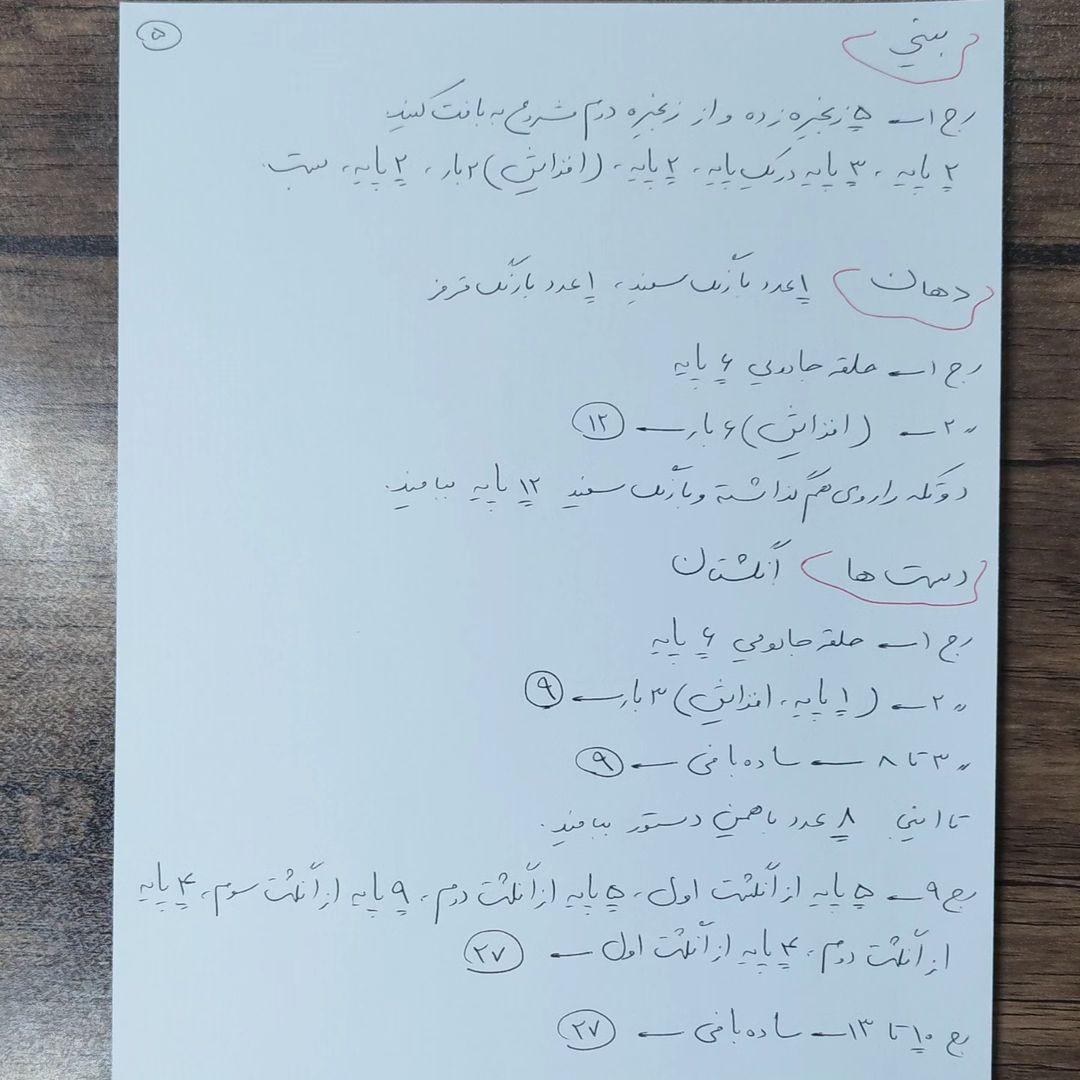 ۵
بینی
رج ۱ ← ۵ زنجیره زده و از زنجیره دوم شروع به بافت کنید.
۲ پایه، ۳ پایه در یک پایه، ۲ پایه، (افزایش) ۲ بار، ۲ پایه، بست.
دهان ۱ عدد با رنگ سفید، ۱ عدد با رنگ قرمز
رج ۱ ← حلقه جادویی ۶ پایه
〃 ۲ ← (افزایش) ۶ بار ← ۱۲
دو تکه را روی هم گذاشته و با رنگ سفید ۱۲ پایه ببافید.
دست ها انگشتان
رج ۱ ← حلقه جادویی ۶ پایه
〃 ۲ ← (۱ پایه، افزایش) ۳ بار ← ۹
〃 ۳ تا ۸ ← ساده بافی ← ۹
تا اینجا ۸ عدد با همین دستور ببافید.
رج ۹ ← ۵ پایه از انگشت اول، ۵ پایه از انگشت دوم، ۹ پایه از انگشت سوم، ۴ پایه
از انگشت دوم، ۴ پایه از انگشت اول ← ۲۷
رج ۱۰ تا ۱۳ ← ساده بافی ← ۲۷